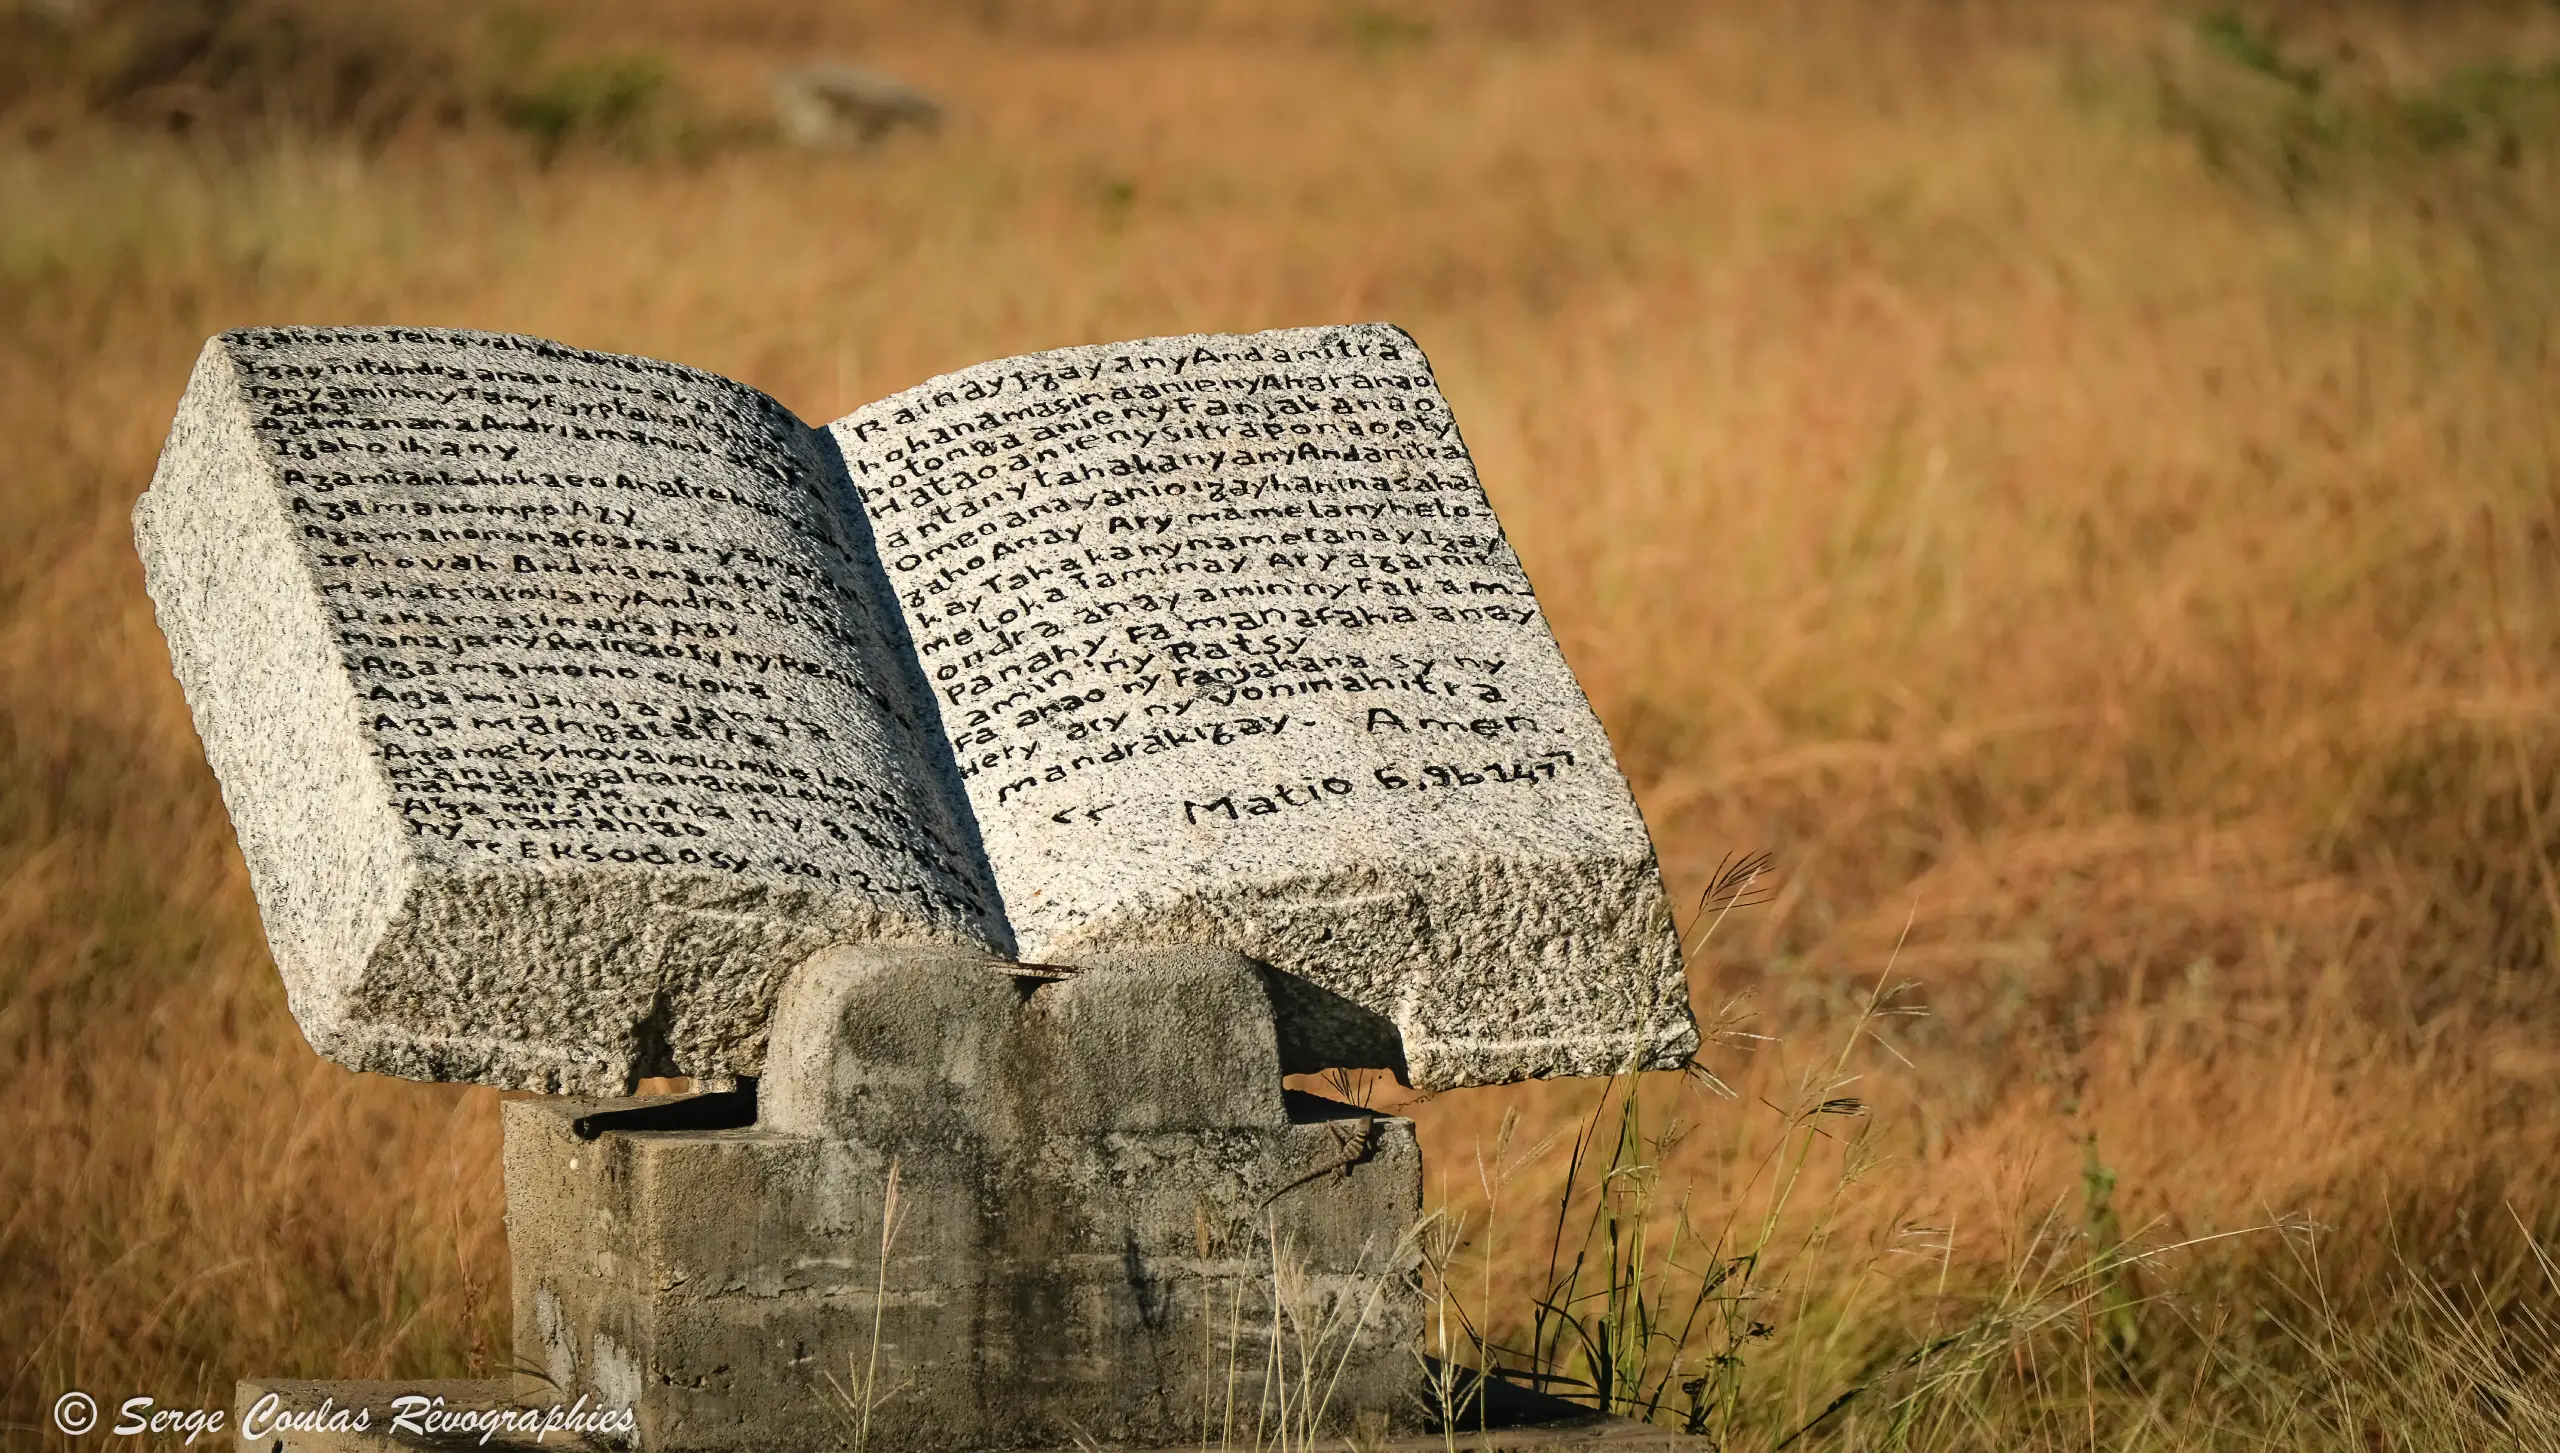 Izaho no Jehovah Andriamanitr
Izay nitondra anao nivoaka
Tany amin'ny Tany Egypta
Aza manana Andriamanitr
Izaho ihany
Aza miankohoka eo Anatrehany
Aza manompo Azy
Aza manonona foana ny anaran
Jehovah Andriamanitrao
Mahatsiarova ny Andro Sabata
Hanamasinana Azy
Manaja ny Rainao sy ny Reni
-Aza mamono olona.
-Aza mijangajanga
-Aza mangalatra
-Aza mety ho vavolombelona
mandainga hanameloka ny
namanao
-Aza mitsiriritra ny
ny namanao
"Eksodosy 20:2-
Rainay Izay any Andanitra
hohanamasinda anie ny Aharanao
hotonga anie ny Fanjakanao,
Hatao anie ny sitraponao, ety
antany tahaka ny any Andanitra
Omeo anay anio izay haninasaha
zaho Anay Ary mamela ny helo-
kay Tahaka ny namelanay Izay
meloka Taminay Ary aza mit-
ondra anay amin'ny Fakam
panahy Fa manafaha anay
amin'ny Ratsy
Fa anao ny Fanjakana sy ny
Hery ary ny voninahitra
mandrakizay. Amen.
<< Matio 6,9b 147"
© Serge Coulas Rêvographies